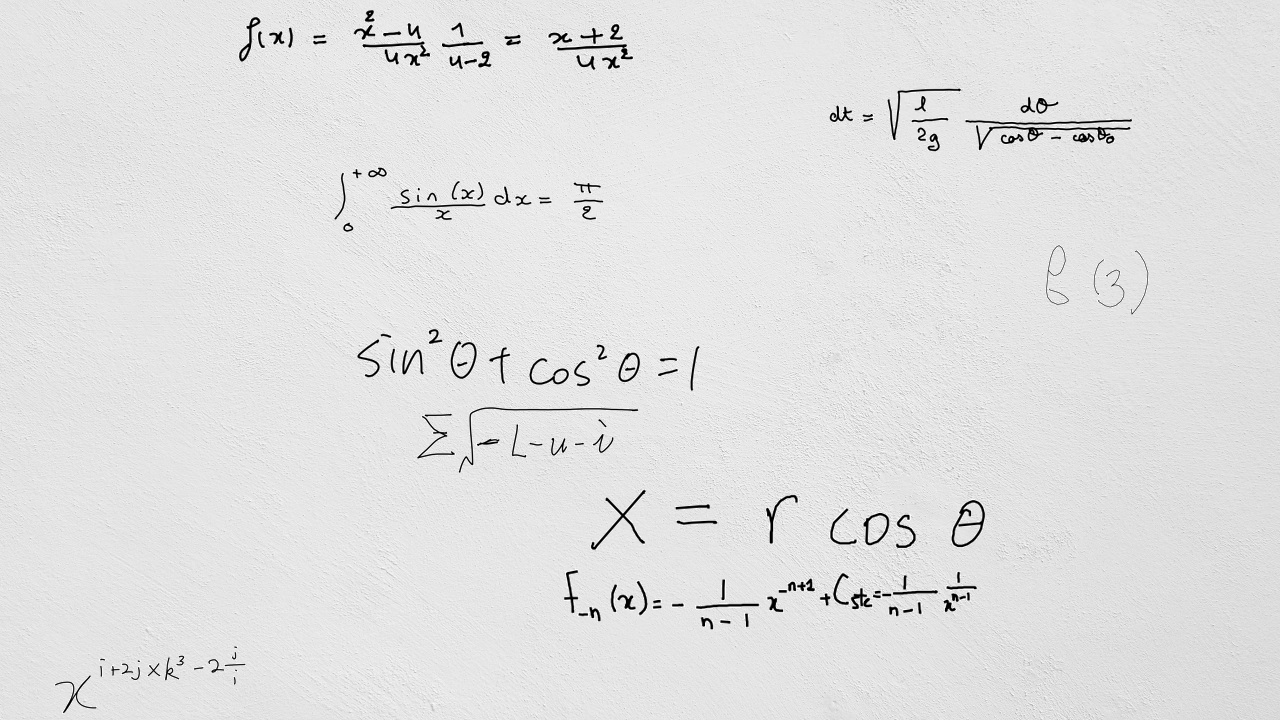 f(x) = \frac{x^2-4}{4x^2} \frac{1}{4-2} = \frac{x+2}{4x^2}
dt = \sqrt{\frac{l}{2g}} \frac{dθ}{\sqrt{cosθ - cosθ_0}}
\int_0^{+∞} \frac{sin(x)}{x} dx = \frac{π}{2}
β(3)
sin^2 θ + cos^2 θ = 1
Σ\sqrt{-L-u-i}
X = r cos θ
F_{-n}(x) = -\frac{1}{n-1} x^{-n+1} + Cste = -\frac{1}{n-1} \frac{1}{x^{n-1}}
x^{i+2j×k^3-2\frac{j}{i}}